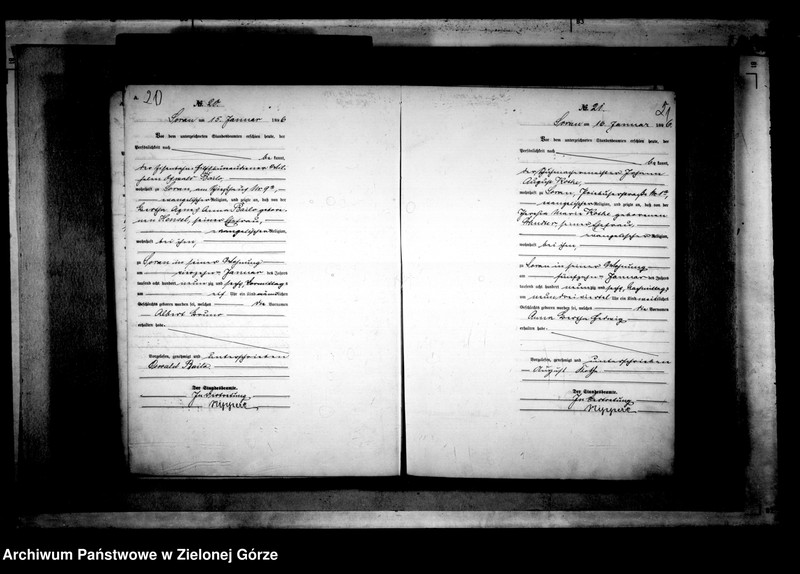 20
№ 20.
Sorau am 15. Januar 1896
Vor dem unterzeichneten Standesbeamten erschien heute, der
Persönlichkeit nach
be kannt,
wohnhaft zu Sorau, am
evangelischer Religion, und zeigte an, daß von der
Bertha Agnes Anna Bailo gebore-
nen Hensel, seiner Ehefrau,
evangelischer Religion,
wohnhaft bei ihm,
zu Sorau in seiner Wohnung
am vierzehn Januar des Jahres
tausend acht hundert neunzig und sechs, Vormittags
um elf Uhr ein Kind männlichen
Geschlechts geboren worden sei, welches die Vornamen
Albert Bruno
erhalten habe.
Vorgelesen, genehmigt und unterschrieben
Oswald Bailo.
Der Standesbeamte.
In Vertretung
№ 21.
21
Sorau am 16. Januar 1896.
Vor dem unterzeichneten Standesbeamten erschien heute, der
Persönlichkeit nach
be kannt,
der Schuhmachermeister Johann
August Kothe,
wohnhaft zu Sorau,
evangelischer Religion, und zeigte an, daß von der
Maria Kothe geborenen
seiner Ehefrau,
evangelischer Religion,
wohnhaft bei ihm,
zu Sorau in seiner Wohnung
am fünfzehn Januar des Jahres
tausend acht hundert neunzig und sechs, Nachmittags
um neun dreiviertel Uhr ein Kind weiblichen
Geschlechts geboren worden sei, welches die Vornamen
Anna Bertha Hedwig
erhalten habe.
Vorgelesen, genehmigt und unterschrieben
August Kothe
Der Standesbeamte.
In Vertretung
Archiwum Państwowe w Zielonej Górze